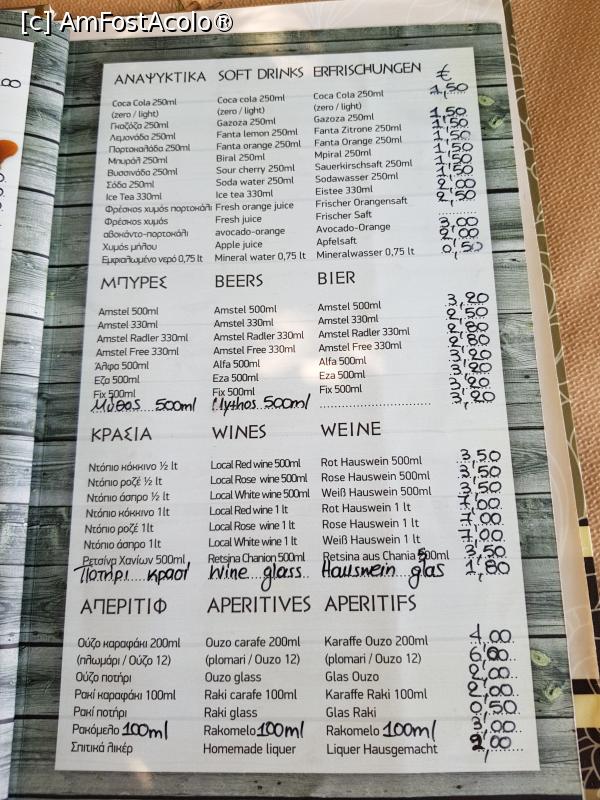 [c] AmFostAcolo®
8
ΑΝΑΨΥΚΤΙΚΑ SOFT DRINKS ERFRISCHUNGEN €
Coca Cola 250ml Coca cola 250ml Coca Cola 250ml 1,50
(zero / light) (zero / light) (zero / light)
Γκαζόζα 250ml Gazoza 250ml Gazoza 250ml 1,50
Λεμονάδα 250ml Fanta lemon 250ml Fanta Zitrone 250ml 1,50
Πορτοκαλάδα 250ml Fanta orange 250ml Fanta Orange 250ml 1,50
Μπυράλ 250ml Biral 250ml Mpiral 250ml 1,50
Βυσσινάδα 250ml Sour cherry 250ml Sauerkirschsaft 250ml 1,50
Σόδα 250ml Soda water 250ml Sodawasser 250ml 1,50
Ice Tea 330ml Ice tea 330ml Eistee 330ml 2,00
Φρέσκος χυμός πορτοκάλι Fresh orange juice Frischer Orangensaft 2,50
Φρέσκος χυμός Fresh juice Frischer Saft
αβοκάντο-πορτοκάλι avocado-orange Avocado-Orange 3,00
Χυμός μήλου Apple juice Apfelsaft 2,00
Εμφιαλωμένο νερό 0,75 lt Mineral water 0,75 lt Mineralwasser 0,75 lt 0,50
ΜΠΥΡΕΣ BEERS BIER
Amstel 500ml Amstel 500ml Amstel 500ml 3,20
Amstel 330ml Amstel 330ml Amstel 330ml 2,50
Amstel Radler 330ml Amstel Radler 330ml Amstel Radler 330ml 2,80
Amstel Free 330ml Amstel Free 330ml Amstel Free 330ml 2,80
Άλφα 500ml Alfa 500ml Alfa 500ml 3,20
Εζα 500ml Eza 500ml Eza 500ml 3,20
Fix 500ml Fix 500ml Fix 500ml 3,20
Μύθος 500ml Mythos 500ml 3,20
ΚΡΑΣΙΑ WINES WEINE
Ντόπιο κόκκινο ½ lt Local Red wine 500ml Rot Hauswein 500ml 3,50
Ντόπιο ροζέ ½ lt Local Rose wine 500ml Rose Hauswein 500ml 3,50
Ντόπιο άσπρο ½ lt Local White wine 500ml Weiß Hauswein 500ml 3,50
Ντόπιο κόκκινο 1 lt Local Red wine 1 lt Rot Hauswein 1 lt 7,00
Ντόπιο ροζέ 1lt Local Rose wine 1 lt Rose Hauswein 1 lt 7,00
Ντόπιο άσπρο 1lt Local White wine 1 lt Weiß Hauswein 1 lt 7,00
Ρετσίνα Χανίων 500ml Retsina Chanion 500ml Retsina aus Chania 500ml 3,50
Ποτήρι κρασί Wine glass Hauswein glas 1,80
ΑΠΕΡΙΤΙΦ APERITIVES APERITIFS
Ούζο καραφάκι 200ml Ouzo carafe 200ml Karaffe Ouzo 200ml 4,00
(πλωμάρι / Ούζο 12) (plomari / Ouzo 12) (plomari / Ouzo 12) 6,00
Ούζο ποτήρι Ouzo glass Glas Ouzo 2,00
Ρακί καραφάκι 100ml Raki carafe 100ml Karaffe Raki 100ml 2,00
Ρακί ποτήρι Raki glass Glas Raki 0,50
Ρακόμελο 100ml Rakomelo 100ml Rakomelo 100ml 3,00
Σπιτικά λικέρ Homemade liquer Liquer Hausgemacht 2,00